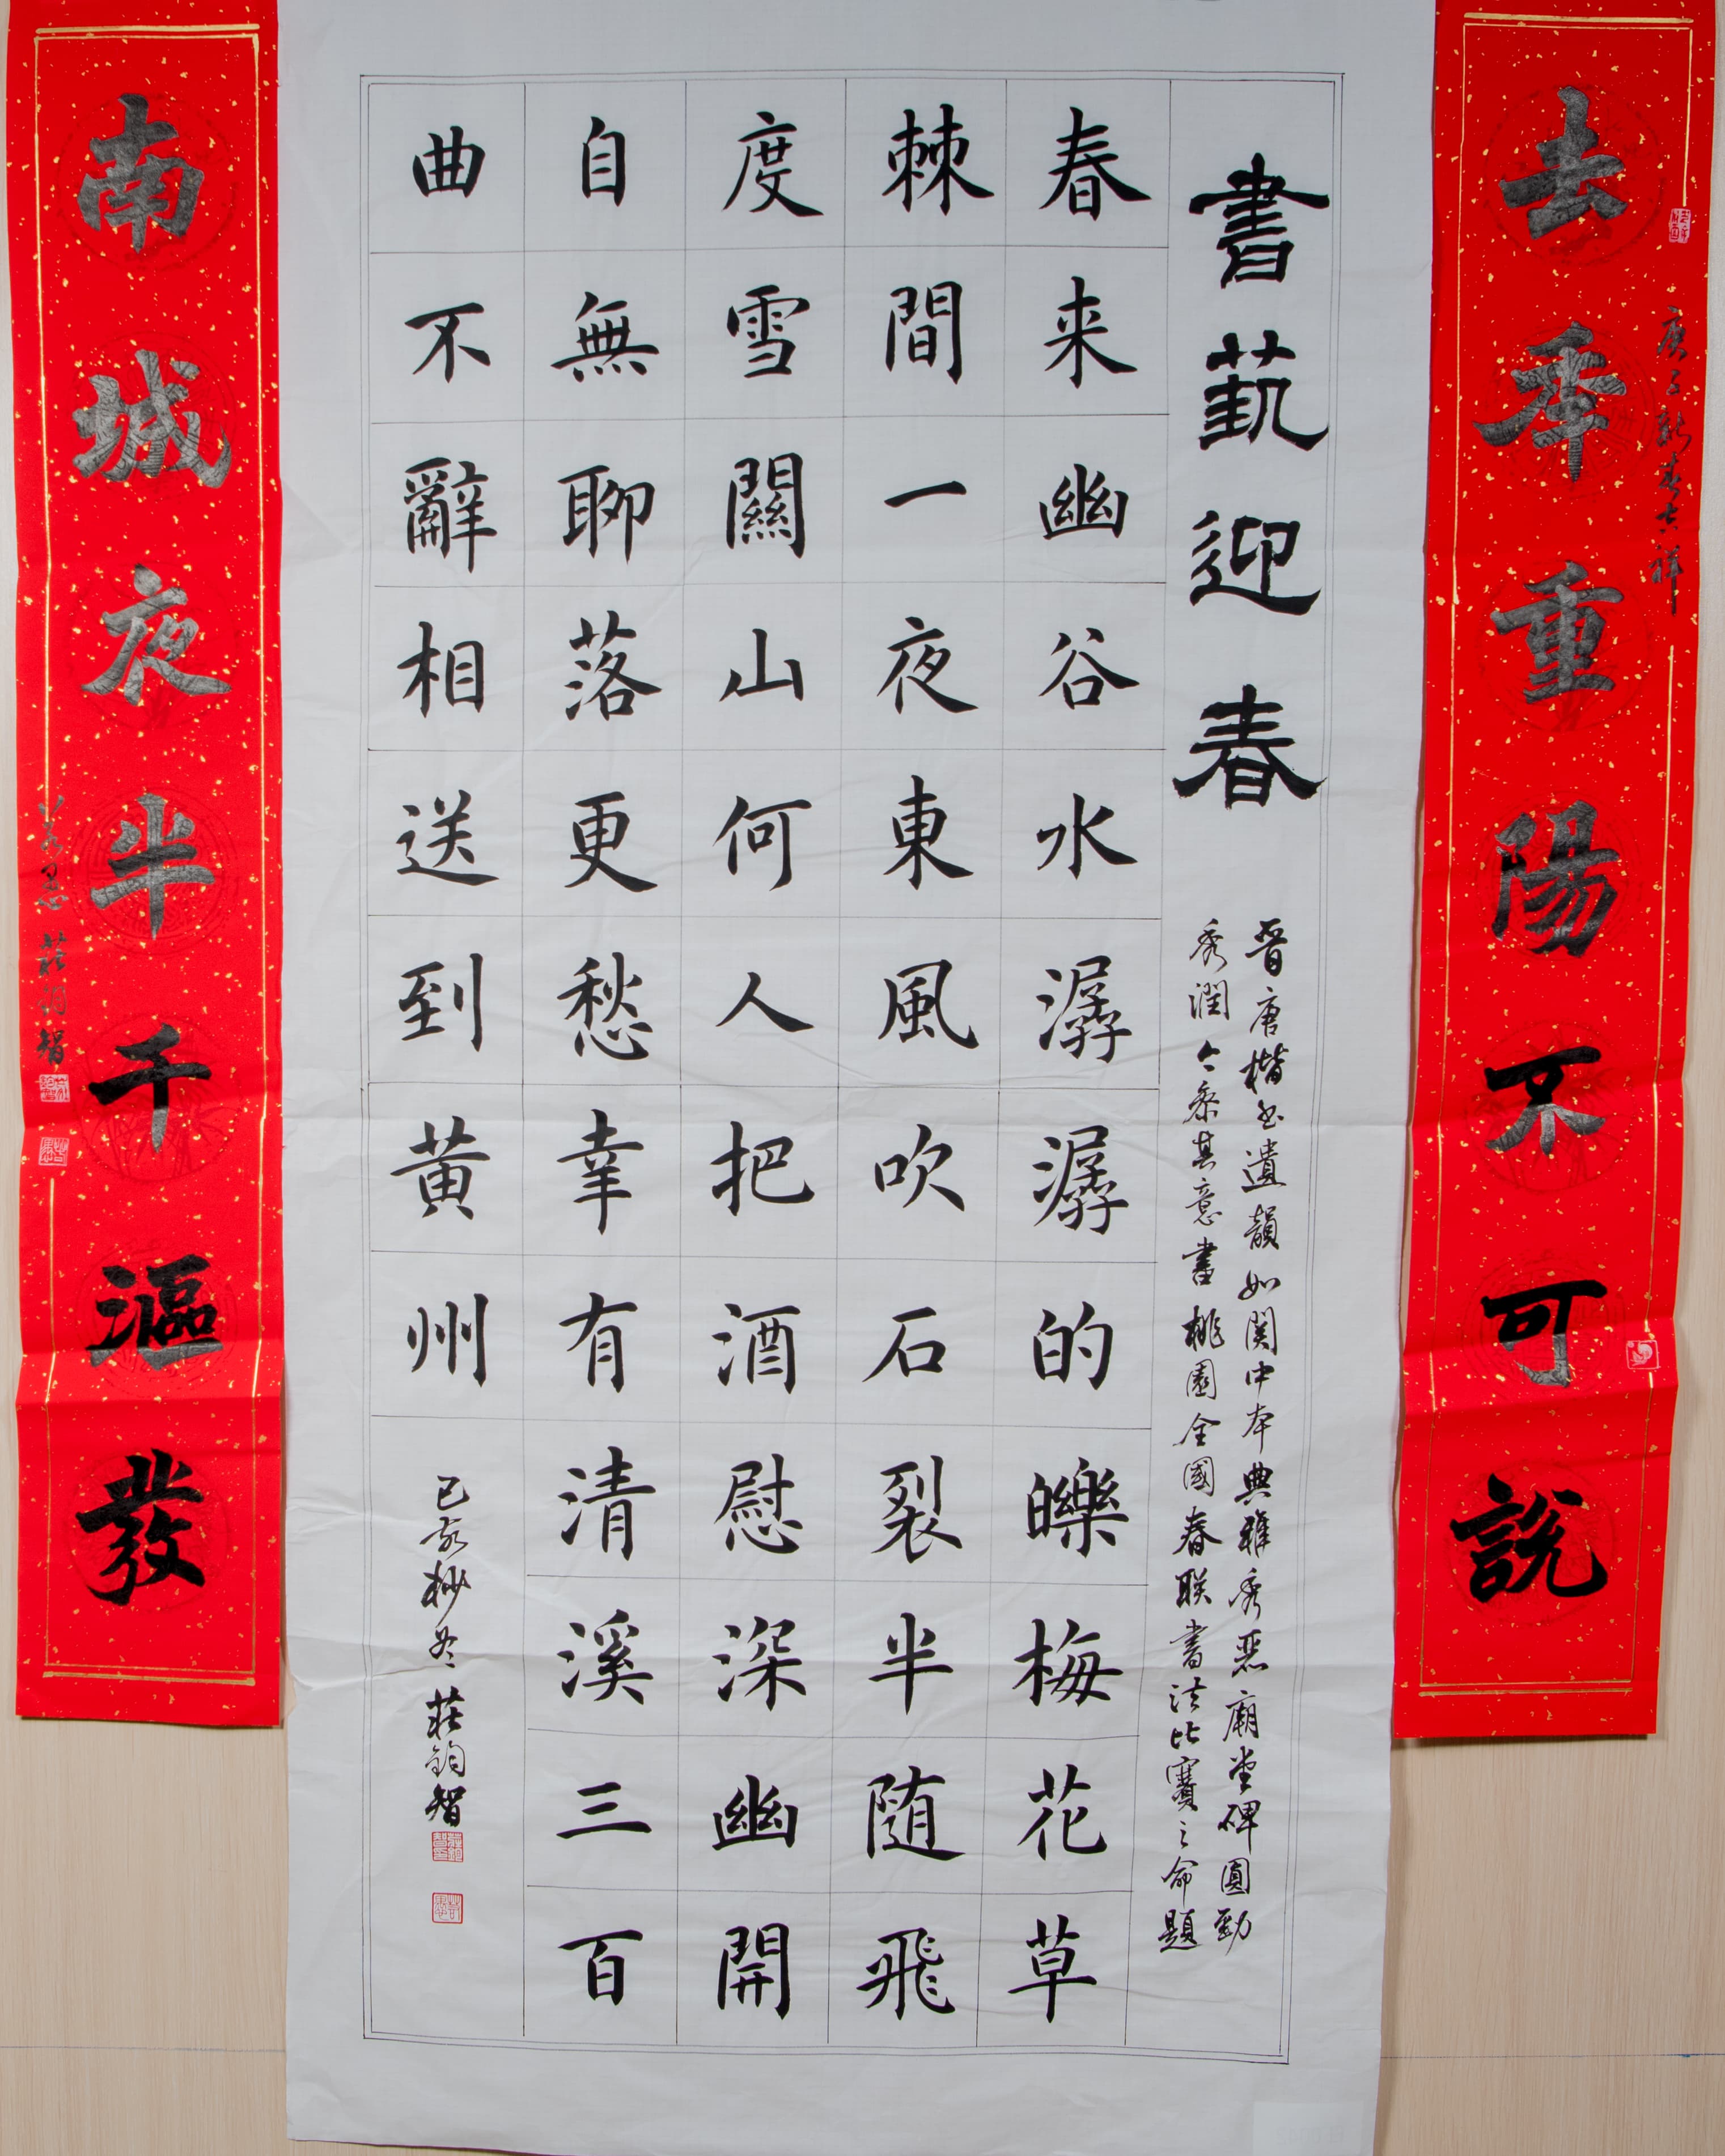 庚子新春吉祥
去秊重陽不可說
書蓺迎春
晋唐楷书遺韻如関中本典雅秀廟堂碑圓勁
秀潤今参其意書桃園全國春联書法比賽之命題
春来幽谷水潺潺的皪梅花草
棘間一夜東風吹石裂半随飛
度雪關山何人把酒慰深幽開
自無聊落更愁幸有清溪三百
曲不辭相送到黄州
己亥杪冬 莊鈞智
南城夜半千漚發
若愚 莊鈞智